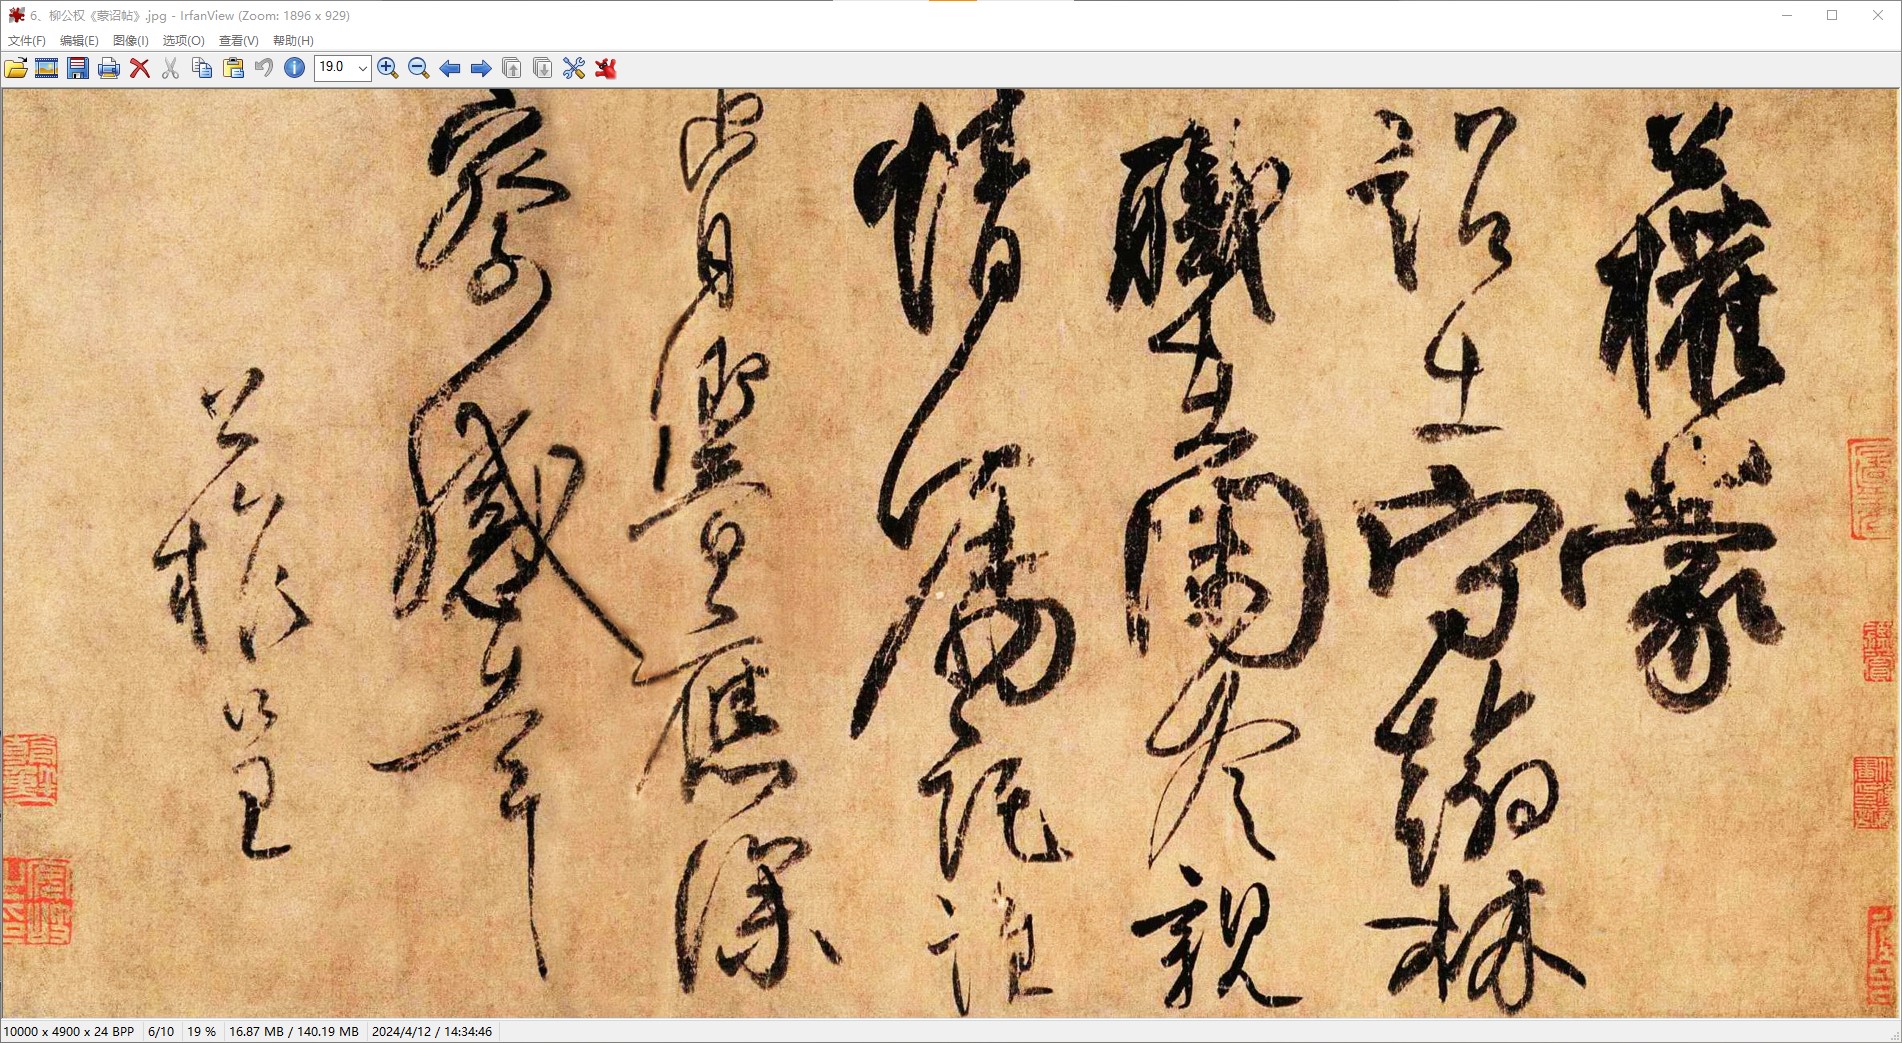 6、柳公权《蒙诏帖》.jpg - IrfanView (Zoom: 1896 x 929)
文件(F) 编辑(E) 图像(I) 选项(O) 查看(V) 帮助(H)
19.0
公權蒙
詔出守翰林
職在閑冷親
情囑託誰
肯響應深
察感幸
公權呈
10000 x 4900 x 24 BPP 6/10 19 % 16.87 MB / 140.19 MB 2024/4/12 / 14:34:46